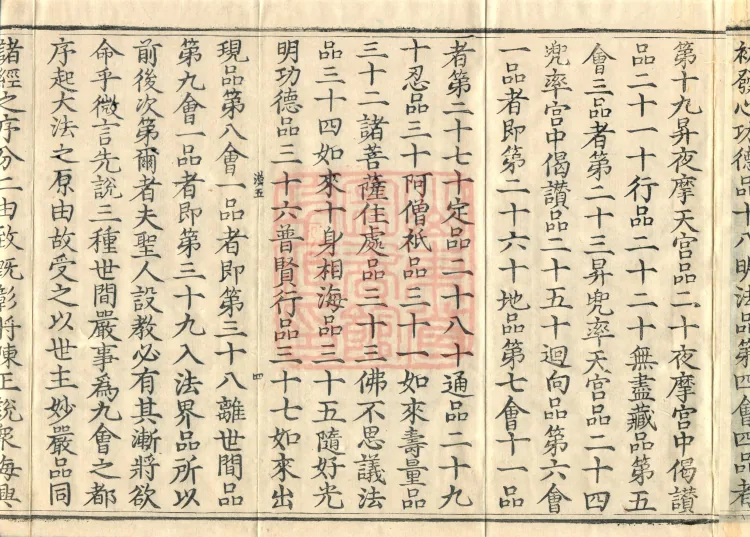 初發心功德品十八明法品第四會四品者
第十九昇夜摩天宮品二十夜摩宮中偈讃
品二十一十行品二十二十無盡藏品第五
會三品者第二十三昇兜率天宮品二十四
兜率宮中偈讃品二十五十迴向品第六會
一品者即第二十六十地品第七會十一品
者第二十七十定品二十八十通品二十九
十忍品三十阿僧祇品三十一如來壽量品
三十二諸菩薩住處品三十三佛不思議法
品三十四如來十身相海品三十五隨好光
明功德品三十六普賢行品三十七如來出
五 四
現品第八會一品者即第三十八離世間品
第九會一品者即第三十九入法界品所以
前後次第爾者夫聖人設教必有其漸將欲
命乎微言先說三種世間嚴事為九會之都
序起大法之原由故受之以世主妙嚴品同
諸經之序分二由致既彰將陳正說衆海興